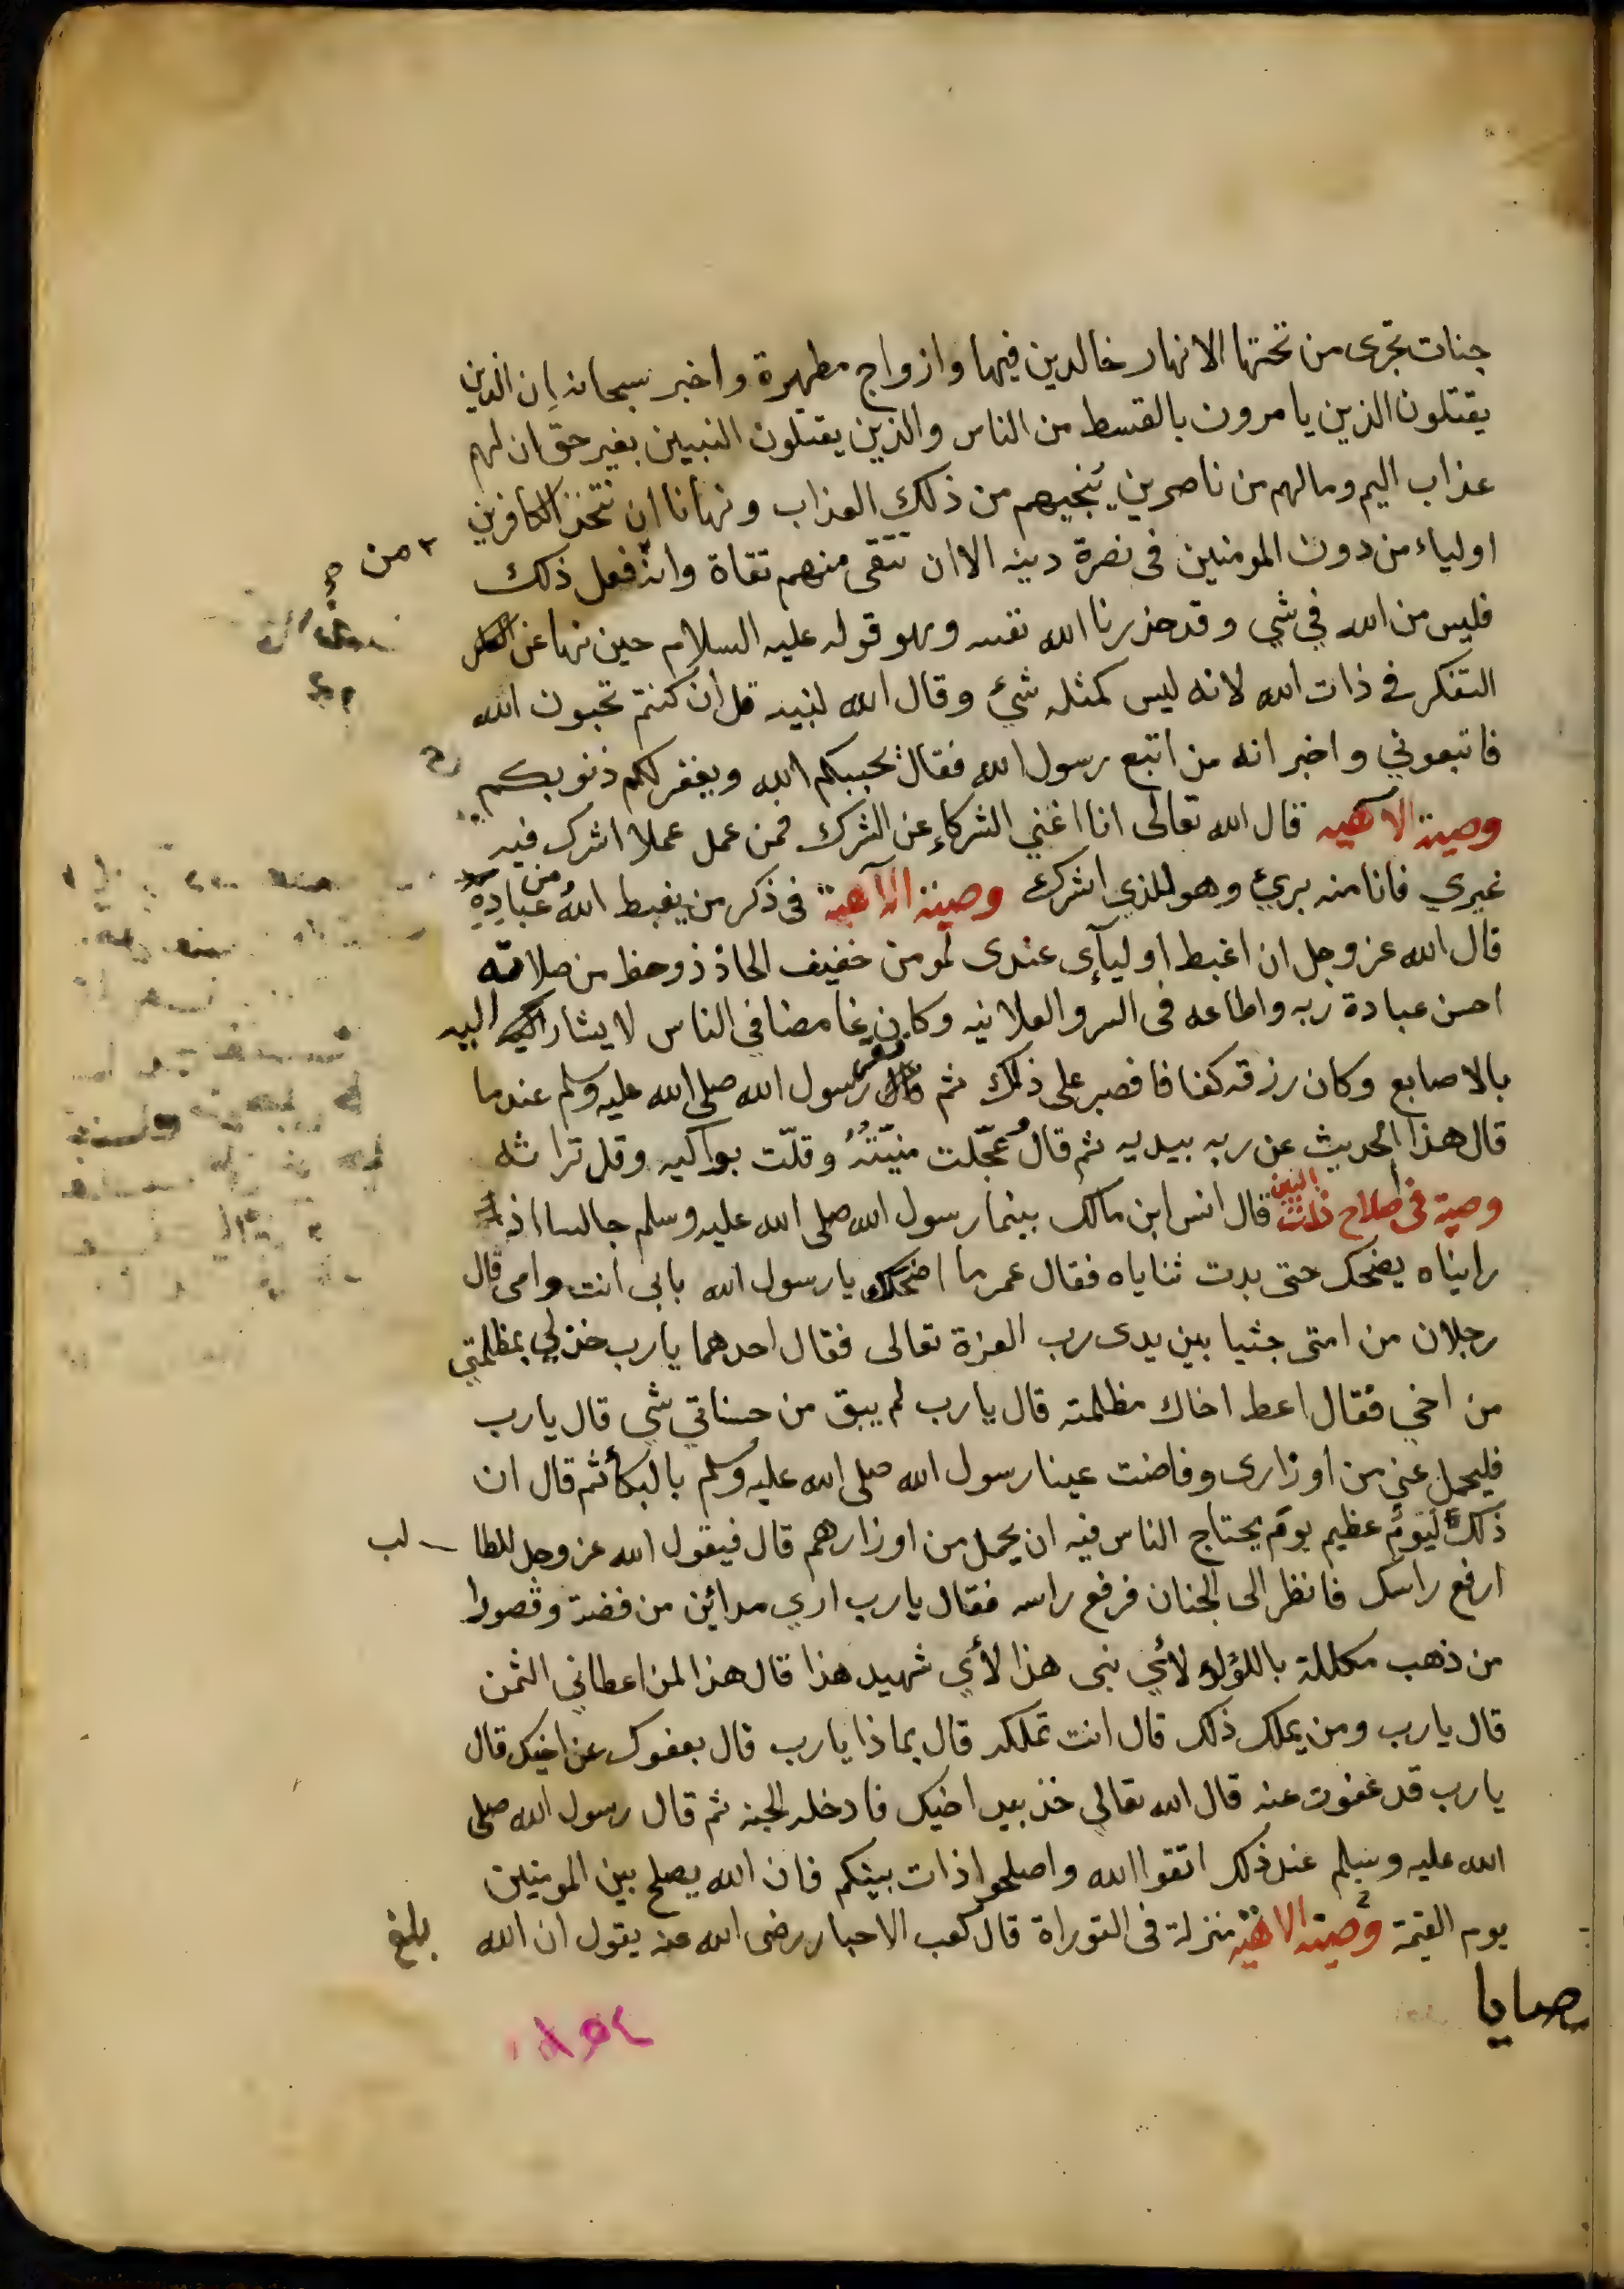 جنات تجرى من تحتها الانهار خالدين فيها وازواج مطهرة واخبر سبحانه إن الذين
يقتلون الذين يامرون بالقسط من الناس والذين يقتلون النبيين بغير حق ان لهم
عذاب اليم ومالهم من ناصرين ينجيهم من ذلك العذاب ونهانا ان نتخذ الكافرين
اولياء من دون المومنين فى نصرة دينه الا ان نتقى منهم تقاة وان فعل ذلك
من
فليس من الله في شي وقد حذرنا الله نفسه وهو قوله عليه السلام حين نها عن
التفكر في ذات الله لانه ليس كمثله شئ وقال الله لنبيه قل ان كنتم تحبون الله
فاتبعوني واخبر انه من اتبع رسول الله فقال يحببكم الله ويغفر لكم ذنوبكم
وصية الآهيه قال الله تعالى انا اغني الشركاء عن الشرك فمن عمل عملا اشرك فيه
غيري فانا منه برئ وهو للذي اشرك وصية الآهية فى ذكر من يغبط الله من عباده
قال الله عز وجل ان اغبط اوليآى عندى لمومن خفيف الحاذ ذوحظ من صلاته
احسن عبادة ربه واطاعه فى السر والعلانيه وكان غامضا في الناس لا يشار اليه
بالاصابع وكان رزقه كفافا فصبر على ذلك ثم نقر رسول الله صلى الله عليه وسلم عندما
قال هذا الحديث عن ربه بيديه ثم قال عجّلت منيّتهُ وقلّت بواكيه وقل تراثه
وصية فى اصلاح ذات البين قال انس ابن مالك بينما رسول الله صلى الله عليه وسلم جالسا اذ
رايناه يضحك حتى بدت ثناياه فقال عمر ما اضحكك يا رسول الله بابى انت وامى قال
رجلان من امتى جثيا بين يدى رب العزة تعالى فقال احدهما يا رب خذ لي بمظلمتي
من اخي فقال اعط اخاك مظلمته قال يا رب لم يبق من حسناتي شي قال يا رب
فليحمل عني من اوزارى وفاضت عينا رسول الله صلى الله عليه وسلم بالبكأ ثم قال ان
ذلك ليوم عظيم يوم يحتاج الناس فيه ان يحمل من اوزارهم قال فيقول الله عز وجل للطالب
ارفع راسك فانظر الى الجنان فرفع راسه فقال يا رب ارى مدائن من فضة وقصورا
من ذهب مكللة باللؤلؤ لأي نبى هذا لأي شهيد هذا قال هذا لمن اعطاني الثمن
قال يا رب ومن يملك ذلك قال انت تملكه قال بماذا يا رب قال بعفوك عن اخيك قال
يا رب قد عفوت عنه قال الله تعالى خذ بيد اخيك فادخله الجنه ثم قال رسول الله صلى
الله عليه وسلم عند ذلك اتقوا الله واصلحوا ذات بينكم فان الله يصلح بين المومنين
يوم القيمة وصية الاهية منزلة فى التوراة قال كعب الاحبار رضى الله عنه يقول ان الله
بلغ
صايا